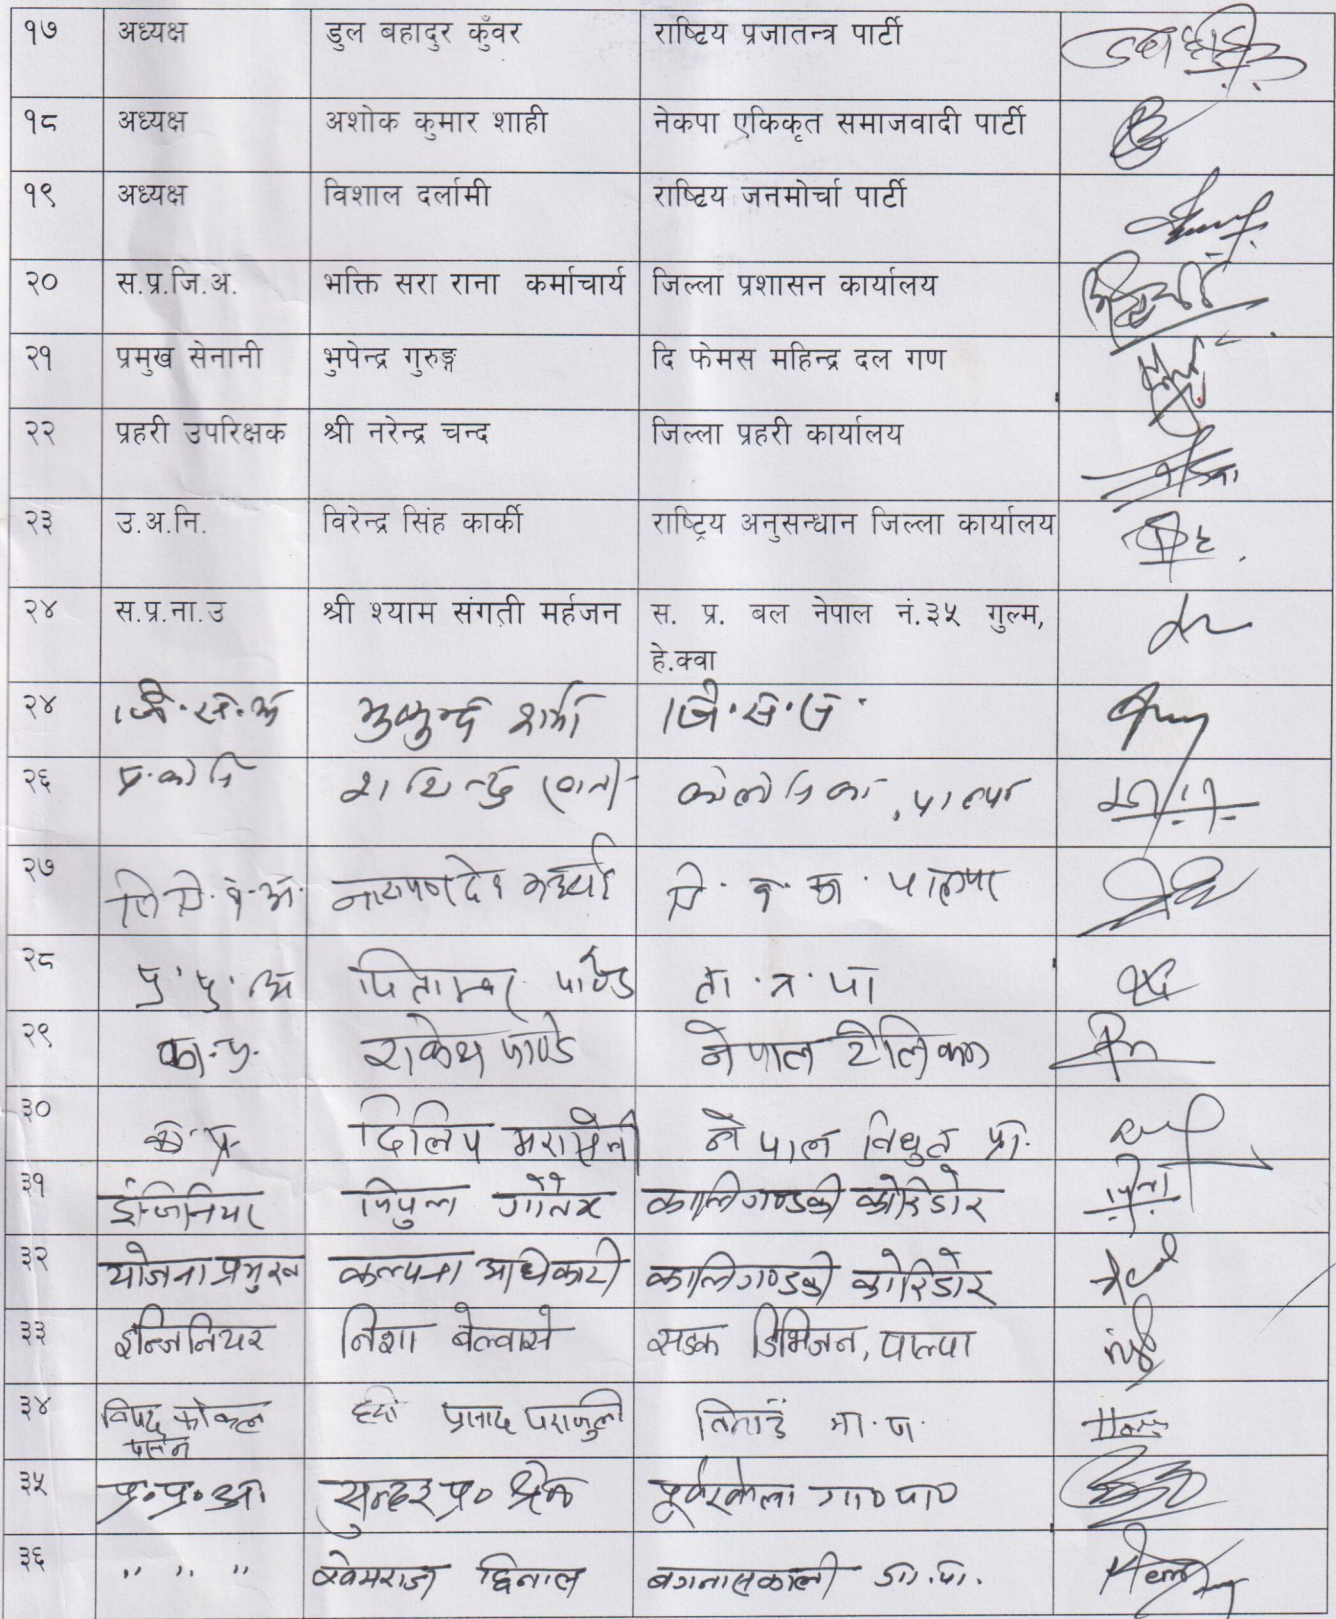 १७ अध्यक्ष डुल बहादुर कुँवर राष्ट्रिय प्रजातन्त्र पार्टी
१८ अध्यक्ष अशोक कुमार शाही नेकपा एकिकृत समाजवादी पार्टी
१९ अध्यक्ष विशाल दर्लामी राष्ट्रिय जनमोर्चा पार्टी
२० स.प्र.जि.अ. भक्ति सरा राना कर्माचार्य जिल्ला प्रशासन कार्यालय
२१ प्रमुख सेनानी भुपेन्द्र गुरुङ्ग दि फेमस महिन्द्र दल गण
२२ प्रहरी उपरिक्षक श्री नरेन्द्र चन्द जिल्ला प्रहरी कार्यालय
२३ उ.अ.नि. विरेन्द्र सिंह कार्की राष्ट्रिय अनुसन्धान जिल्ला कार्यालय
२४ स.प्र.ना.उ श्री श्याम संगती मर्हजन स. प्र. बल नेपाल नं.३५ गुल्म,
हे.क्वा
२४ जि.स.अ मुकुन्द शर्मा जि.स.स.
२६ पाल्पा
२७ पाल्पा
२८ प्र.प्र.अ पिताम्बर पाण्डे ता.न.पा
२९ का.प्र. राकेश पाण्डे नेपाल टेलिकम
३० का.प्र. दिलिप मरासेनी नेपाल विधुत प्रा.
३१ इन्जिनियर विपुल गौतम कालिगण्डकी कोरिडोर
३२ योजना प्रमुख कल्पना अधिकारी कालिगण्डकी कोरिडोर
३३ इन्जिनियर निशा बेल्वासे सडक डिभिजन, पाल्पा
३४ विपद प्रसाद पराजुली
३५ प्र.प्र.अ. सुन्दर प्र० श्रेष्ठ पूर्वखोला गा०पा०
३६ " " " खेमराज बगनासकाली गा.पा.